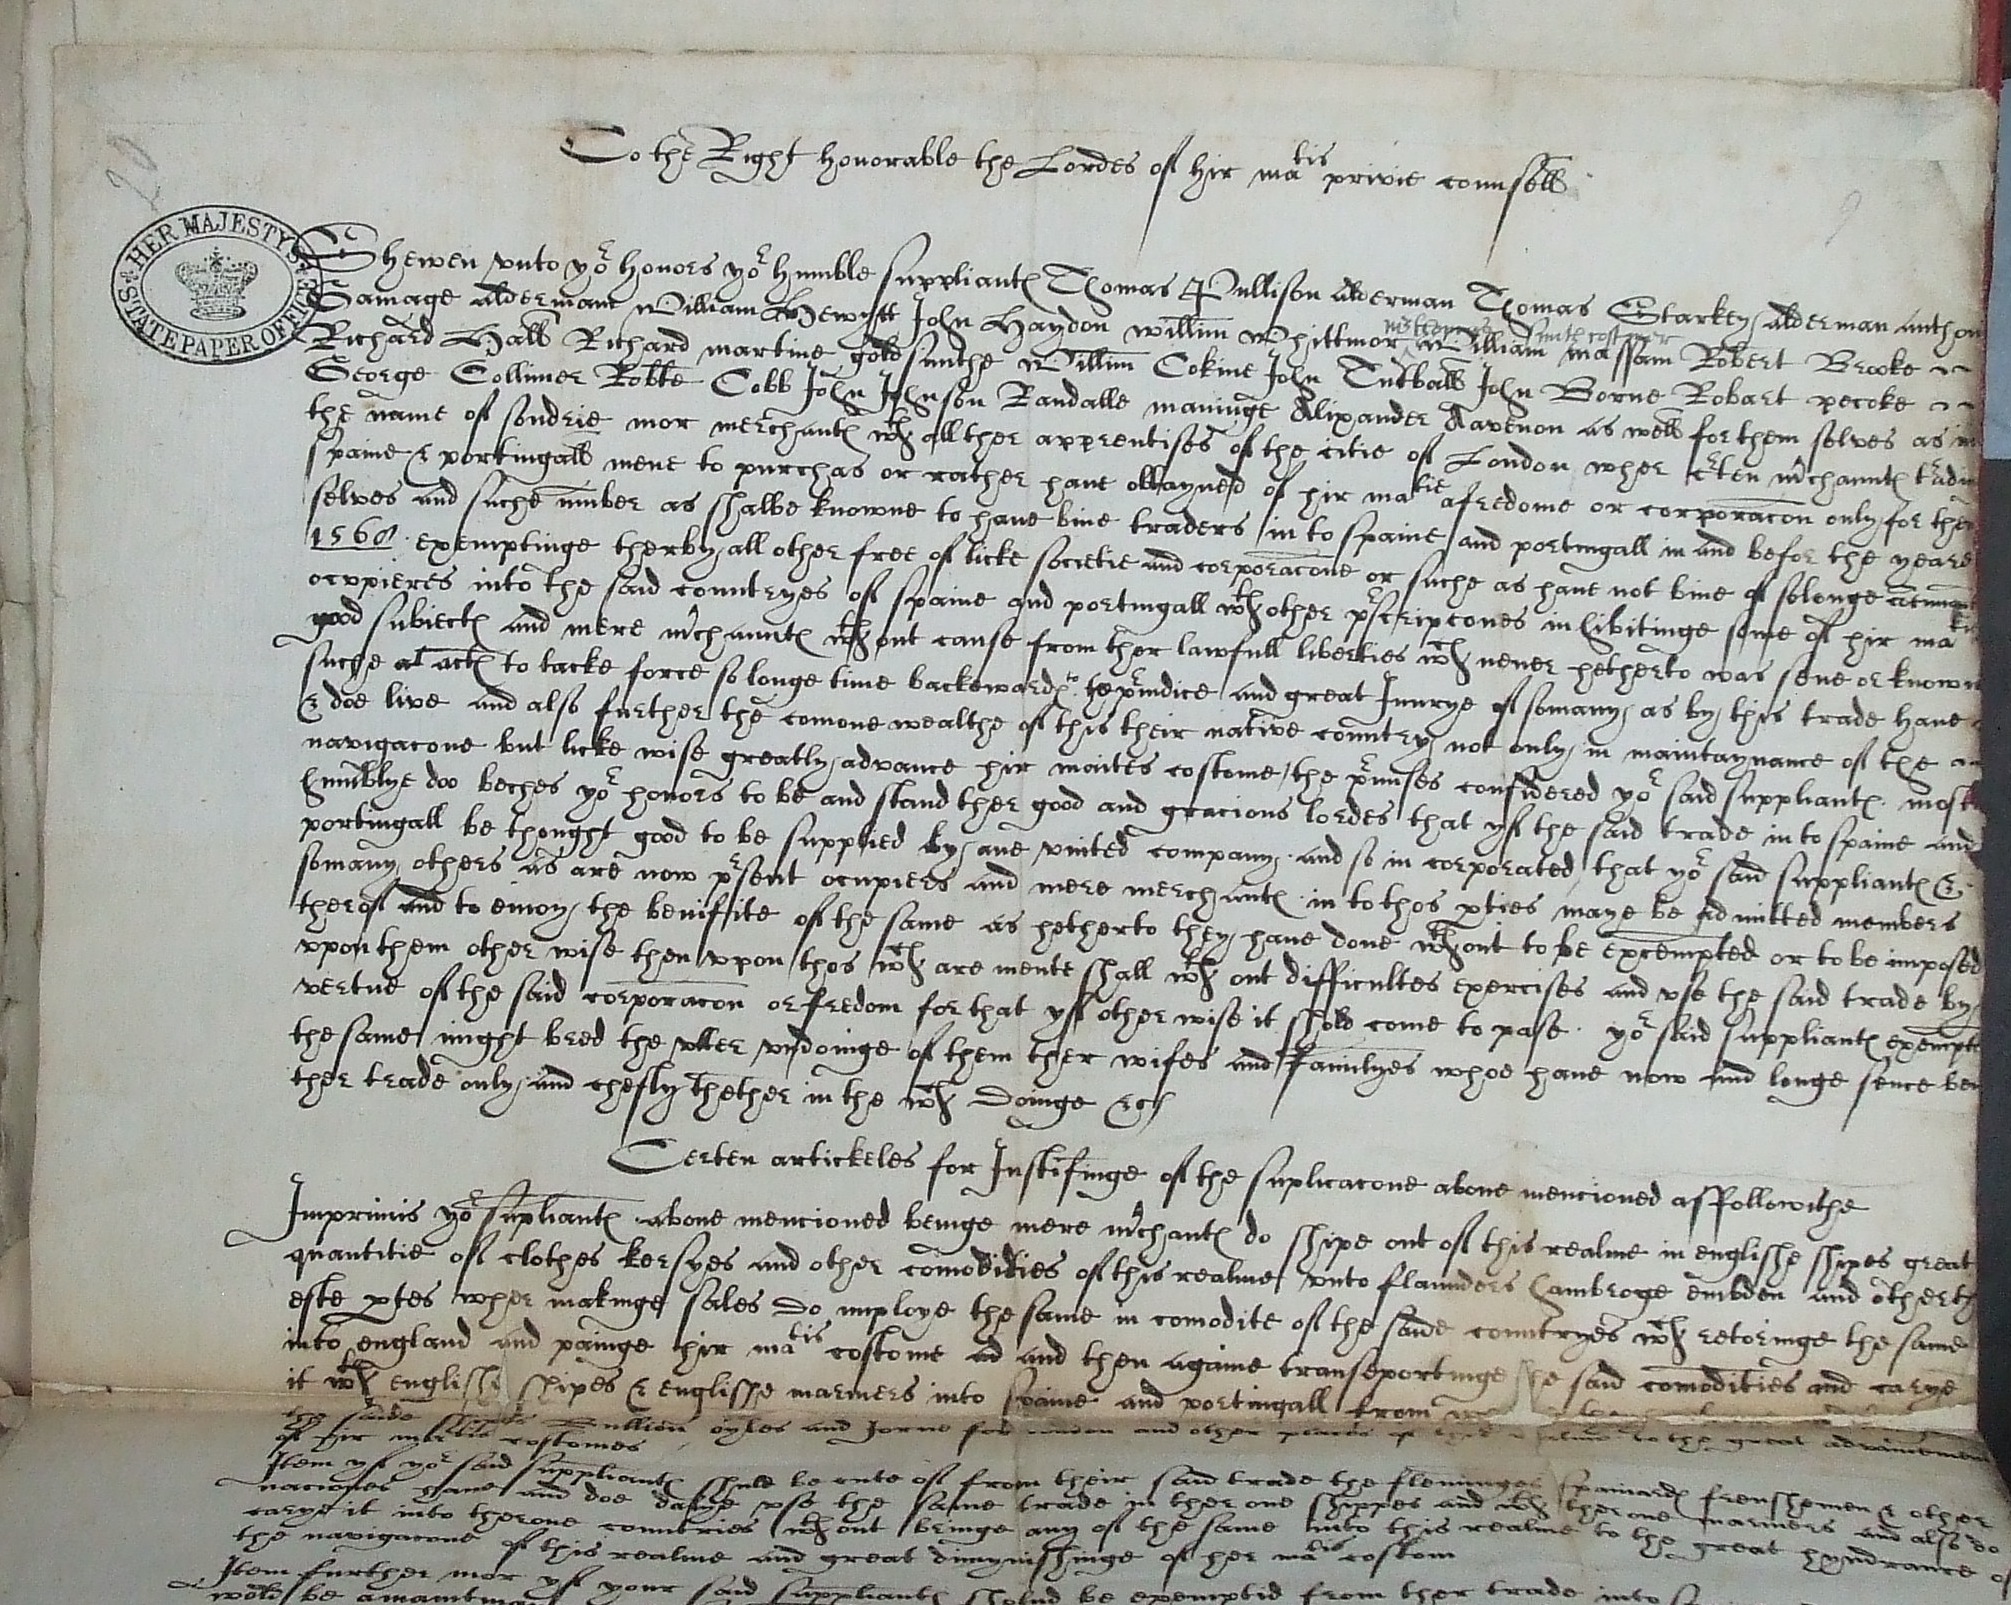 20
9
HER MAJESTY'S STATE PAPER OFFICE
To the Right honorable the Lordes of hir matis privie counsell
Shewen vnto yor honors yor humble suppliantes Thomas Pullison Alderman Thomas Starkey Alderman Anthon
Gamage Aldermane William Hewytt John Haydon willm Whittmor William Massam Robert Brooke
smith costomer
Richard Hall Richard martine goldsmithe Willm Cokine John Tutball John Borne Robart pecoke
George Collimer Robte Cobb John Johnson Randalle maninge Alixander Avenon as well for them selves as in
the name of sondrie mor merchantes wth all ther apprentises of the citie of London wher certen mrchauntes tradin
spaine & portingall mene to purchas or rather have obtayned of hir matie a fredome or corporacon only for them
selves and suche nmber as shalbe knowne to have bine traders in to spaine and portingall in and befor the yeare
1568 exemptinge therby all other free of licke societie and corporacone or suche as have not bine of so longe
occupieres into the said countryes of spaine and portingall wth other prscripcones inhibitinge some of hir matis
good subiectes and mere mrchauntes wth out cause from ther lawfull liberties wch never hetherto was sene or knowne
suche actes to tacke force so longe time backewardes to preiudice and great Iniurye of so many as by this trade have
& doe live and also further the comone wealthe of this their native country not only in maintaynance of the
navigacone but licke wise greatly advance hir maites costome / the prmises considered yor said suppliantes most
humblye doo beches yor honors to be and stand ther good and gracious lordes that yf the said trade in to spaine and
portingall be thought good to be supplied by ane vnited company and so in corporated that yor said suppliantes &
so many others as are now prsent ocupiers and mere merchantes in to thos pties maye be admitted members
therof and to enioy the benifite of the same as hetherto they have done wth out to be exempted or to be imposed
vpon them other wise then vpon thos wch are mente shall wth out difficultes exercises and vse the said trade by
vertue of the said corporacon or fredom for that yf other wise it shold come to pase yor said suppliantes exempte
the same might bred the vtter vndoinge of them ther wifes and familyes whoe have now and longe sence ben
ther trade only and chefly thether in the wch doinge &c
Certen artickeles for Iustifinge of the suplicacone above mencioned as followithe
Imprimis yor supliantes above mencioned beinge mere mrchantes do shipe out of this realme in englishe shipes great
quantitie of clothes kersyes and other comodities of this realme vnto flaunders hambroge embden and other th
este ptes wher makinge sales do imploye the same in comodite of the saide countryes wch retorninge the same
into england and painge hir matis costome ad and then againe transeportinge the said comodities and carye
it wth englishe shipes & englishe mariners into spaine and portingall from
the saide bullion oyles and Iorne for and other places of to the great advancement
of hir costomes
Item yf yor said suppliantes shuld be pute of from their said trade the fleminges spainardes frenshemen & other
naciones have and doe dayly vse the same trade in ther one shippes and wth ther one mariners and also do
carye it into ther one countries wth out bringe any of the same into this realme to the great hyndrance of
the navigacone of this realme and great dimynishinge of her matis costom
Item further mor yf your said suppliantes shold be exemptid from ther trade into
wold be